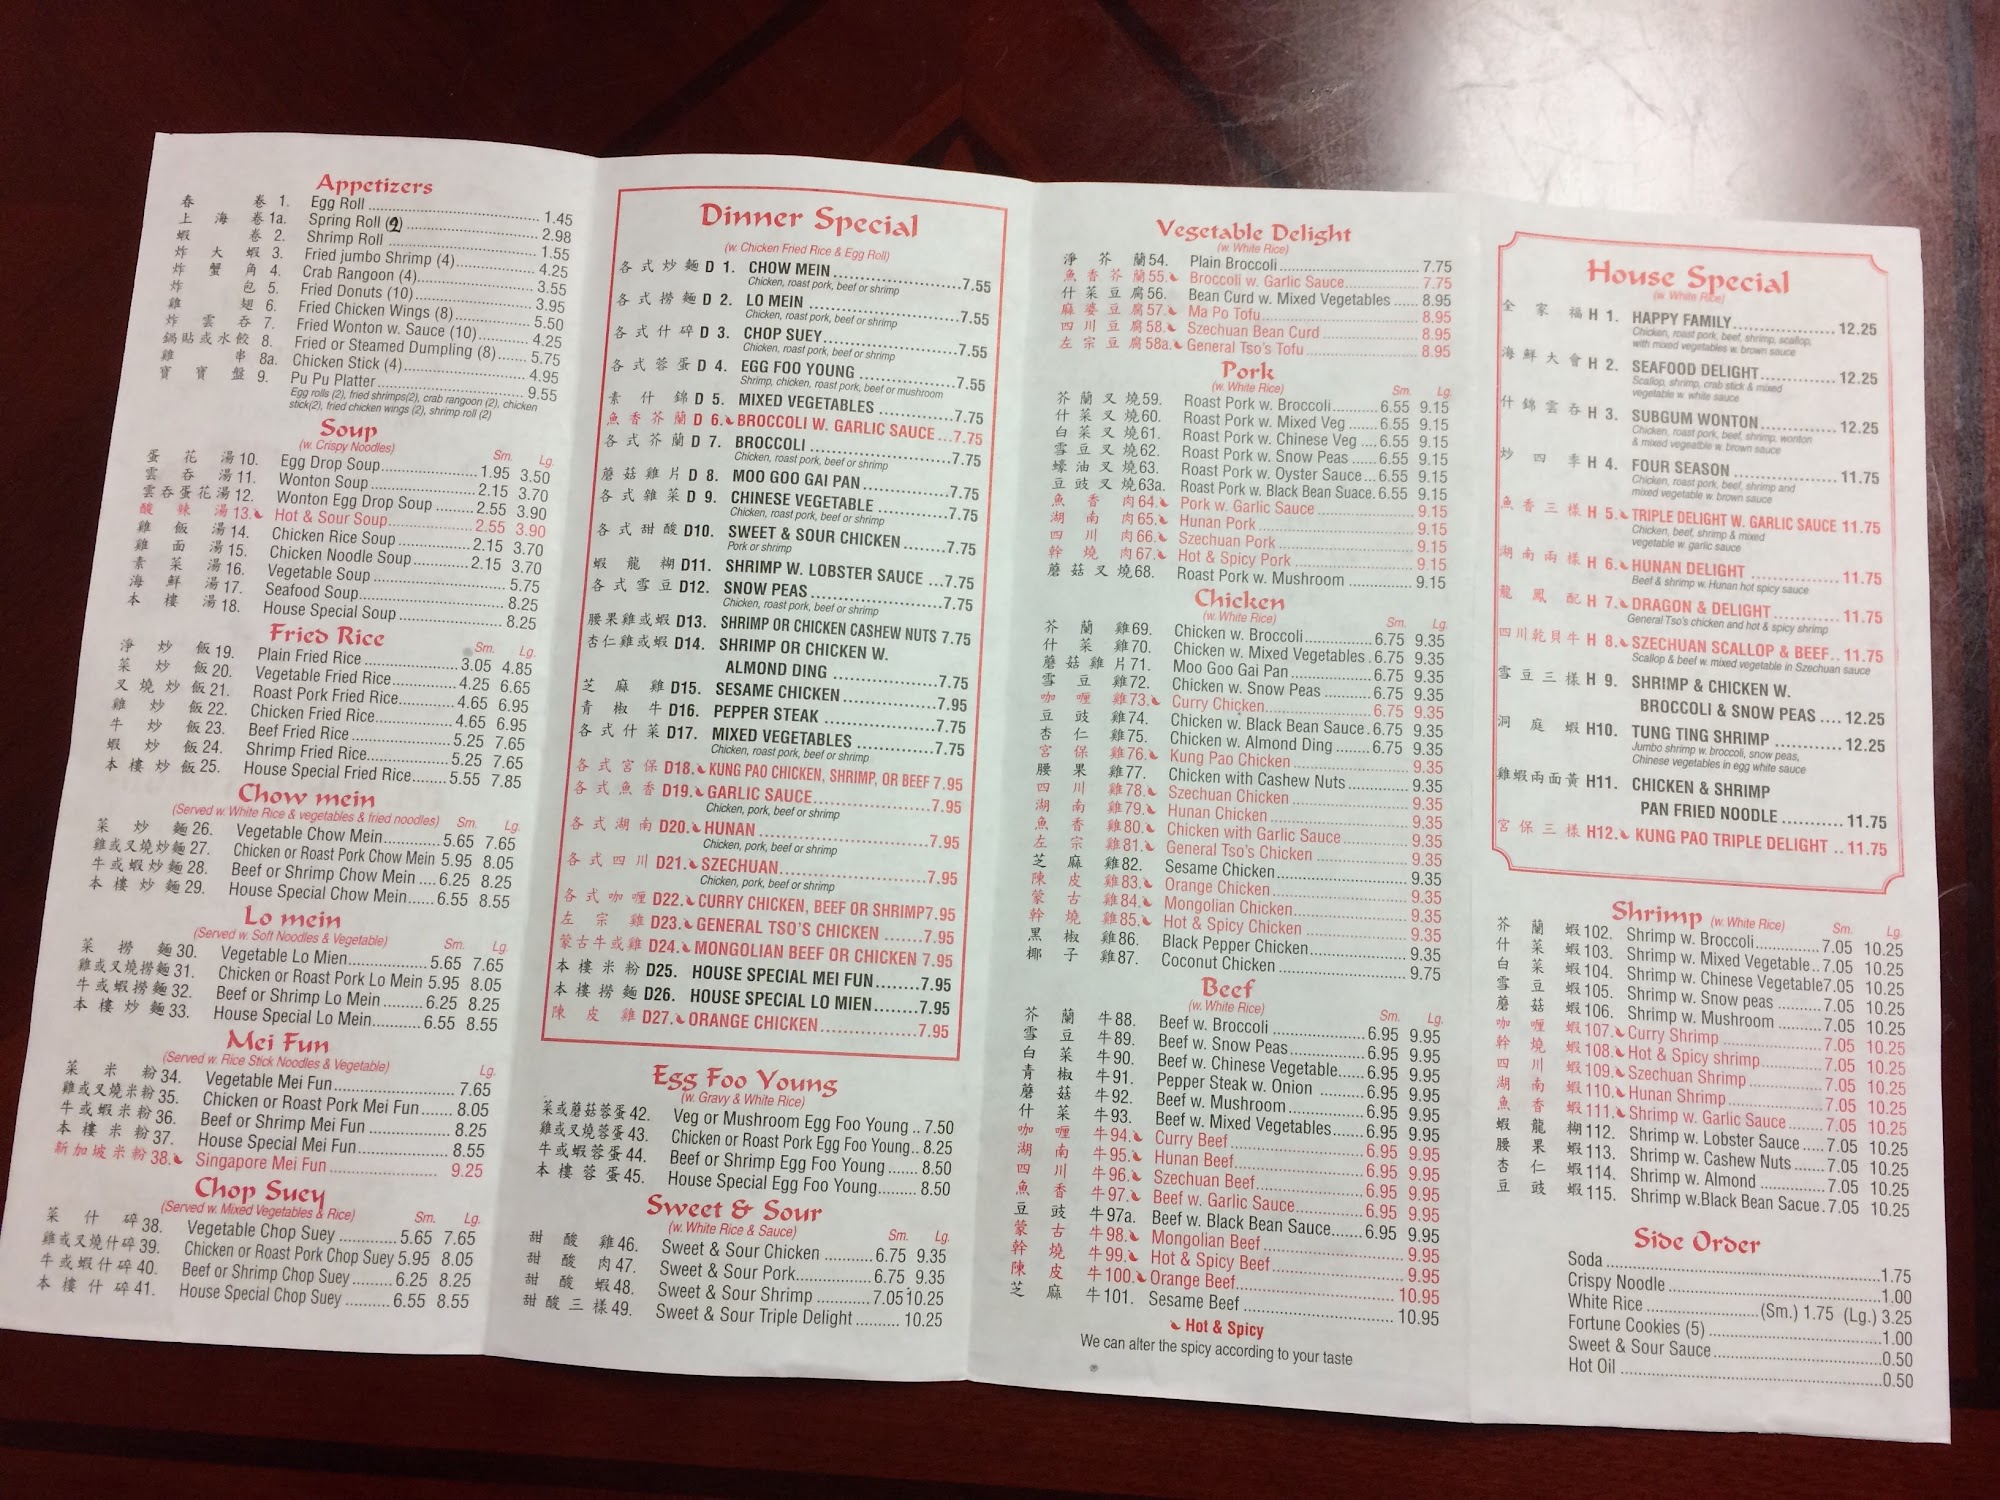 Appetizers
春 卷 1. Egg Roll 1.45
上 海 卷 1a. Spring Roll (2) 2.98
蝦 卷 2. Shrimp Roll 1.55
炸 大 蝦 3. Fried jumbo Shrimp (4) 4.25
炸 蟹 角 4. Crab Rangoon (4) 3.55
炸 包 5. Fried Donuts (10) 3.95
雞 翅 6. Fried Chicken Wings (8) 5.50
炸 雲 吞 7. Fried Wonton w. Sauce (10) 4.25
鍋貼或水餃 8. Fried or Steamed Dumpling (8) 5.75
雞 串 8a. Chicken Stick (4) 4.95
寶 寶 盤 9. Pu Pu Platter 9.55
Egg rolls (2), fried shrimps(2), crab rangoon (2), chicken
stick(2), fried chicken wings (2), shrimp roll (2)
Soup
(w. Crispy Noodles) Sm. Lg.
蛋 花 湯 10. Egg Drop Soup 1.95 3.50
雲 吞 湯 11. Wonton Soup 2.15 3.70
雲吞蛋花湯 12. Wonton Egg Drop Soup 2.55 3.90
酸 辣 湯 13. Hot & Sour Soup 2.55 3.90
雞 飯 湯 14. Chicken Rice Soup 2.15 3.70
雞 面 湯 15. Chicken Noodle Soup 2.15 3.70
素 菜 湯 16. Vegetable Soup 5.75
海 鮮 湯 17. Seafood Soup 8.25
本 樓 湯 18. House Special Soup 8.25
Fried Rice Sm. Lg.
淨 炒 飯 19. Plain Fried Rice 3.05 4.85
菜 炒 飯 20. Vegetable Fried Rice 4.25 6.65
叉 燒 炒 飯 21. Roast Pork Fried Rice 4.65 6.95
雞 炒 飯 22. Chicken Fried Rice 4.65 6.95
牛 炒 飯 23. Beef Fried Rice 5.25 7.65
蝦 炒 飯 24. Shrimp Fried Rice 5.25 7.65
本 樓 炒 飯 25. House Special Fried Rice 5.55 7.85
Chow mein
(Served w. White Rice & vegetables & fried noodles) Sm. Lg.
菜 炒 麵 26. Vegetable Chow Mein 5.65 7.65
雞或叉燒炒麵 27. Chicken or Roast Pork Chow Mein 5.95 8.05
牛或蝦炒麵 28. Beef or Shrimp Chow Mein 6.25 8.25
本 樓 炒 麵 29. House Special Chow Mein 6.55 8.55
Lo mein
(Served w. Soft Noodles & Vegetable) Sm. Lg.
菜 撈 麵 30. Vegetable Lo Mien 5.65 7.65
雞或叉燒撈麵 31. Chicken or Roast Pork Lo Mein 5.95 8.05
牛或蝦撈麵 32. Beef or Shrimp Lo Mein 6.25 8.25
本 樓 炒 麵 33. House Special Lo Mein 6.55 8.55
Mei Fun
(Served w. Rice Stick Noodles & Vegetable) Lg.
菜 米 粉 34. Vegetable Mei Fun 7.65
雞或叉燒米粉 35. Chicken or Roast Pork Mei Fun 8.05
牛或蝦米粉 36. Beef or Shrimp Mei Fun 8.25
本 樓 米 粉 37. House Special Mei Fun 8.55
新加坡米粉 38. Singapore Mei Fun 9.25
Chop Suey
(Served w. Mixed Vegetables & Rice) Sm. Lg.
菜 什 碎 38. Vegetable Chop Suey 5.65 7.65
雞或叉燒什碎 39. Chicken or Roast Pork Chop Suey 5.95 8.05
牛或蝦什碎 40. Beef or Shrimp Chop Suey 6.25 8.25
本 樓 什 碎 41. House Special Chop Suey 6.55 8.55
Dinner Special
(w. Chicken Fried Rice & Egg Roll)
各 式 炒 麵 D 1. CHOW MEIN 7.55
Chicken, roast pork, beef or shrimp
各 式 撈 麵 D 2. LO MEIN 7.55
Chicken, roast pork, beef or shrimp
各 式 什 碎 D 3. CHOP SUEY 7.55
Chicken, roast pork, beef or shrimp
各 式 蓉 蛋 D 4. EGG FOO YOUNG 7.55
Shrimp, chicken, roast pork, beef or mushroom
素 什 錦 D 5. MIXED VEGETABLES 7.75
魚 香 芥 蘭 D 6. BROCCOLI W. GARLIC SAUCE 7.75
各 式 芥 蘭 D 7. BROCCOLI 7.75
Chicken, roast pork, beef or shrimp
蘑 菇 雞 片 D 8. MOO GOO GAI PAN 7.75
各 式 雜 菜 D 9. CHINESE VEGETABLE 7.75
Chicken, roast pork, beef or shrimp
各 式 甜 酸 D10. SWEET & SOUR CHICKEN 7.75
Pork or shrimp
蝦 龍 糊 D11. SHRIMP W. LOBSTER SAUCE 7.75
各 式 雪 豆 D12. SNOW PEAS 7.75
Chicken, roast pork, beef or shrimp
腰果雞或蝦 D13. SHRIMP OR CHICKEN CASHEW NUTS 7.75
杏仁雞或蝦 D14. SHRIMP OR CHICKEN W.
ALMOND DING 7.75
芝 麻 雞 D15. SESAME CHICKEN 7.95
青 椒 牛 D16. PEPPER STEAK 7.75
各 式 什 菜 D17. MIXED VEGETABLES 7.75
Chicken, roast pork, beef or shrimp
各 式 宮 保 D18. KUNG PAO CHICKEN, SHRIMP, OR BEEF 7.95
各 式 魚 香 D19. GARLIC SAUCE 7.95
Chicken, pork, beef or shrimp
各 式 湖 南 D20. HUNAN 7.95
Chicken, pork, beef or shrimp
各 式 四 川 D21. SZECHUAN 7.95
Chicken, pork, beef or shrimp
各 式 咖 喱 D22. CURRY CHICKEN, BEEF OR SHRIMP 7.95
左 宗 雞 D23. GENERAL TSO'S CHICKEN 7.95
蒙古牛或雞 D24. MONGOLIAN BEEF OR CHICKEN 7.95
本 樓 米 粉 D25. HOUSE SPECIAL MEI FUN 7.95
本 樓 撈 麵 D26. HOUSE SPECIAL LO MIEN 7.95
陳 皮 雞 D27. ORANGE CHICKEN 7.95
Egg Foo Young
(w. Gravy & White Rice)
菜或蘑菇蓉蛋 42. Veg or Mushroom Egg Foo Young 7.50
雞或叉燒蓉蛋 43. Chicken or Roast Pork Egg Foo Young 8.25
牛或蝦蓉蛋 44. Beef or Shrimp Egg Foo Young 8.50
本 樓 蓉 蛋 45. House Special Egg Foo Young 8.50
Sweet & Sour
(w. White Rice & Sauce) Sm. Lg.
甜 酸 雞 46. Sweet & Sour Chicken 6.75 9.35
甜 酸 肉 47. Sweet & Sour Pork 6.75 9.35
甜 酸 蝦 48. Sweet & Sour Shrimp 7.05 10.25
甜 酸 三 樣 49. Sweet & Sour Triple Delight 10.25
Vegetable Delight
(w. White Rice)
淨 芥 蘭 54. Plain Broccoli 7.75
魚 香 芥 蘭 55. Broccoli w. Garlic Sauce 7.75
什 菜 豆 腐 56. Bean Curd w. Mixed Vegetables 8.95
麻 婆 豆 腐 57. Ma Po Tofu 8.95
四 川 豆 腐 58. Szechuan Bean Curd 8.95
左 宗 豆 腐 58a. General Tso's Tofu 8.95
Pork
(w. White Rice) Sm. Lg.
芥 蘭 叉 燒 59. Roast Pork w. Broccoli 6.55 9.15
什 菜 叉 燒 60. Roast Pork w. Mixed Veg 6.55 9.15
白 菜 叉 燒 61. Roast Pork w. Chinese Veg 6.55 9.15
雪 豆 叉 燒 62. Roast Pork w. Snow Peas 6.55 9.15
蠔 油 叉 燒 63. Roast Pork w. Oyster Sauce 6.55 9.15
豆 豉 叉 燒 63a. Roast Pork w. Black Bean Suace 6.55 9.15
魚 香 肉 64. Pork w. Garlic Sauce 9.15
湖 南 肉 65. Hunan Pork 9.15
四 川 肉 66. Szechuan Pork 9.15
幹 燒 肉 67. Hot & Spicy Pork 9.15
蘑 菇 叉 燒 68. Roast Pork w. Mushroom 9.15
Chicken
(w. White Rice) Sm. Lg.
芥 蘭 雞 69. Chicken w. Broccoli 6.75 9.35
什 菜 雞 70. Chicken w. Mixed Vegetables 6.75 9.35
蘑 菇 雞 片 71. Moo Goo Gai Pan 6.75 9.35
雪 豆 雞 72. Chicken w. Snow Peas 6.75 9.35
咖 喱 雞 73. Curry Chicken 6.75 9.35
豆 豉 雞 74. Chicken w. Black Bean Sauce 6.75 9.35
杏 仁 雞 75. Chicken w. Almond Ding 6.75 9.35
宮 保 雞 76. Kung Pao Chicken 9.35
腰 果 雞 77. Chicken with Cashew Nuts 9.35
四 川 雞 78. Szechuan Chicken 9.35
湖 南 雞 79. Hunan Chicken 9.35
魚 香 雞 80. Chicken with Garlic Sauce 9.35
左 宗 雞 81. General Tso's Chicken 9.35
芝 麻 雞 82. Sesame Chicken 9.35
陳 皮 雞 83. Orange Chicken 9.35
蒙 古 雞 84. Mongolian Chicken 9.35
幹 燒 雞 85. Hot & Spicy Chicken 9.35
黑 椒 雞 86. Black Pepper Chicken 9.35
椰 子 雞 87. Coconut Chicken 9.75
Beef
(w. White Rice) Sm. Lg.
芥 蘭 牛 88. Beef w. Broccoli 6.95 9.95
雪 豆 牛 89. Beef w. Snow Peas 6.95 9.95
白 菜 牛 90. Beef w. Chinese Vegetable 6.95 9.95
青 椒 牛 91. Pepper Steak w. Onion 6.95 9.95
蘑 菇 牛 92. Beef w. Mushroom 6.95 9.95
什 菜 牛 93. Beef w. Mixed Vegetables 6.95 9.95
咖 喱 牛 94. Curry Beef 6.95 9.95
湖 南 牛 95. Hunan Beef 6.95 9.95
四 川 牛 96. Szechuan Beef 6.95 9.95
魚 香 牛 97. Beef w. Garlic Sauce 6.95 9.95
豆 豉 牛 97a. Beef w. Black Bean Sauce 6.95 9.95
蒙 古 牛 98. Mongolian Beef 9.95
幹 燒 牛 99. Hot & Spicy Beef 9.95
陳 皮 牛 100. Orange Beef 10.95
芝 麻 牛 101. Sesame Beef 10.95
Hot & Spicy
We can alter the spicy according to your taste
House Special
(w. White Rice)
全 家 福 H 1. HAPPY FAMILY 12.25
Chicken, roast pork, beef, shrimp, scallop,
with mixed vegetables w. brown sauce
海 鮮 大 會 H 2. SEAFOOD DELIGHT 12.25
Scallop, shrimp, crab stick & mixed
vegetable w. white sauce
什 錦 雲 吞 H 3. SUBGUM WONTON 12.25
Chicken, roast pork, beef, shrimp, wonton
& mixed vegeatble w. brown sauce
炒 四 季 H 4. FOUR SEASON 11.75
Chicken, roast pork, beef, shrimp and
mixed vegetable w. brown sauce
魚 香 三 樣 H 5. TRIPLE DELIGHT W. GARLIC SAUCE 11.75
Chicken, beef, shrimp & mixed
vegetable w. garlic sauce
湖 南 兩 樣 H 6. HUNAN DELIGHT 11.75
Beef & shrimp w. Hunan hot spicy sauce
龍 鳳 配 H 7. DRAGON & DELIGHT 11.75
General Tso's chicken and hot & spicy shrimp
四川乾貝牛 H 8. SZECHUAN SCALLOP & BEEF 11.75
Scallop & beef w. mixed vegetable in Szechuan sauce
雪 豆 三 樣 H 9. SHRIMP & CHICKEN W.
BROCCOLI & SNOW PEAS 12.25
洞 庭 蝦 H10. TUNG TING SHRIMP 12.25
Jumbo shrimp w. broccoli, snow peas,
Chinese vegetables in egg white sauce
雞蝦兩面黃 H11. CHICKEN & SHRIMP
PAN FRIED NOODLE 11.75
宮 保 三 樣 H12. KUNG PAO TRIPLE DELIGHT 11.75
Shrimp (w. White Rice) Sm. Lg.
芥 蘭 蝦 102. Shrimp w. Broccoli 7.05 10.25
什 菜 蝦 103. Shrimp w. Mixed Vegetable 7.05 10.25
白 菜 蝦 104. Shrimp w. Chinese Vegetable 7.05 10.25
雪 豆 蝦 105. Shrimp w. Snow peas 7.05 10.25
蘑 菇 蝦 106. Shrimp w. Mushroom 7.05 10.25
咖 喱 蝦 107. Curry Shrimp 7.05 10.25
幹 燒 蝦 108. Hot & Spicy shrimp 7.05 10.25
四 川 蝦 109. Szechuan Shrimp 7.05 10.25
湖 南 蝦 110. Hunan Shrimp 7.05 10.25
魚 香 蝦 111. Shrimp w. Garlic Sauce 7.05 10.25
蝦 龍 糊 112. Shrimp w. Lobster Sauce 7.05 10.25
腰 果 蝦 113. Shrimp w. Cashew Nuts 7.05 10.25
杏 仁 蝦 114. Shrimp w. Almond 7.05 10.25
豆 豉 蝦 115. Shrimp w.Black Bean Sacue 7.05 10.25
Side Order
Soda 1.75
Crispy Noodle 1.00
White Rice (Sm.) 1.75 (Lg.) 3.25
Fortune Cookies (5) 1.00
Sweet & Sour Sauce 0.50
Hot Oil 0.50